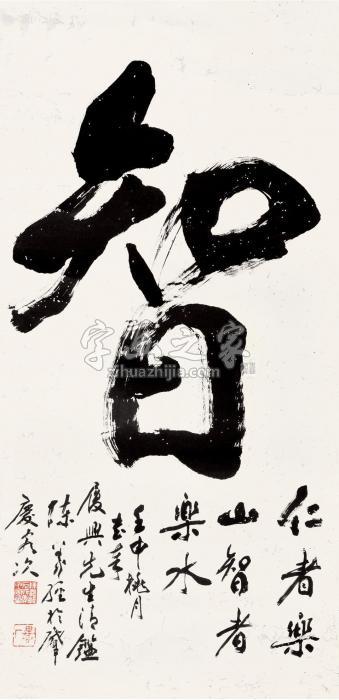 智
仁者樂
山智者
樂水
壬申桃月
復興先生清鑑
陳 於肇
慶客次
字画之家
zihuazhijia.com